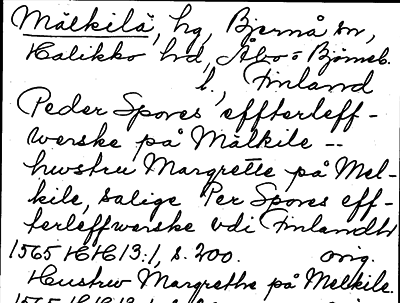 Mälkilä, hg, Bjernå sn,
Halikko hd, Åbo o Björneb.
l., Finland
Peder Spores effterleff-
werske på Mälkile --
hwstru Margrette på Mel-
kile, salige Per Spores eff-
terleffwerske vdi Finlandh
1565 HH 13:1, s. 200. orig.
Hustrw Margrethe på Melkile.
1565 HH 13:1, s.